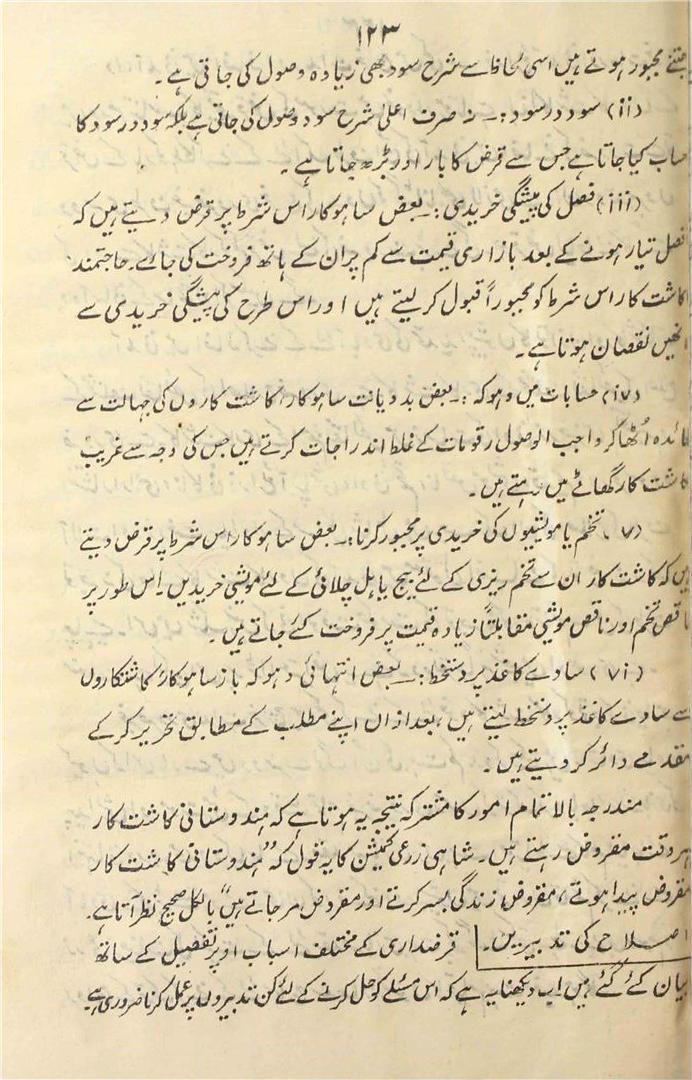 ۱۲۳
جتنے مجبور ہوتے ہیں اسی لحاظ سے شرح سود بھی زیادہ وصول کی جاتی ہے۔
(ii) سود در سود:۔ نہ صرف اعلیٰ شرح سود وصول کی جاتی ہے بلکہ سود در سود کا
حساب کیا جاتا ہے جس سے قرض کا بار اور بڑھ جاتا ہے۔
(iii) فصل کی پیشگی خریدی:۔ بعض ساہوکار اس شرط پر قرض دیتے ہیں کہ
فصل تیار ہونے کے بعد بازاری قیمت سے کم پر ان کے ہاتھ فروخت کی جائے۔ حاجتمند
کاشت کار اس شرط کو مجبوراً قبول کر لیتے ہیں اور اس طرح کی پیشگی خریدی سے
انھیں نقصان ہوتا ہے۔
(iv) حسابات میں دہوکہ:۔ بعض بددیانت ساہوکار، کاشت کاروں کی جہالت سے
فائدہ اُٹھا کر واجب الوصول رقومات کے غلط اندراجات کرتے ہیں جس کی وجہ سے غریب
کاشت کار گھاٹے میں رہتے ہیں۔
(v) تخم یا مویشیوں کی خریدی پر مجبور کرنا:۔ بعض ساہوکار اس شرط پر قرض دیتے
ہیں کہ کاشت کار ان سے تخم ریزی کے لئے بیج یا ہل چلانے کے لئے مویشی خریدیں۔ اس طور پر
ناقص تخم اور ناقص مویشی مقابلتاً زیادہ قیمت پر فروخت کئے جاتے ہیں۔
(vi) سادے کاغذ پر دستخط:۔ بعض انتہائی دہوکہ باز ساہوکار کاشتکاروں
سے سادے کاغذ پر دستخط لیتے ہیں، بعد ازاں اپنے مطلب کے مطابق تحریر کر کے
مقدمے دائر کر دیتے ہیں۔
مندرجہ بالا تمام امور کا مشترکہ نتیجہ یہ ہوتا ہے کہ ہندوستانی کاشت کار
ہر وقت مقروض رہتے ہیں۔ شاہی زرعی کمیشن کا یہ قول کہ "ہندوستانی کاشت کار
مقروض پیدا ہوتے، مقروض زندگی بسر کرتے اور مقروض مر جاتے ہیں" بالکل صحیح نظر آتا ہے۔
اصلاح کی تدبیریں۔ قرضداری کے مختلف اسباب اوپر تفصیل کے ساتھ
بیان کئے گئے ہیں اب دیکھنا یہ ہے کہ اس مسئلے کو حل کرنے کے لئے کن تدبیروں پر عمل کرنا ضروری ہے